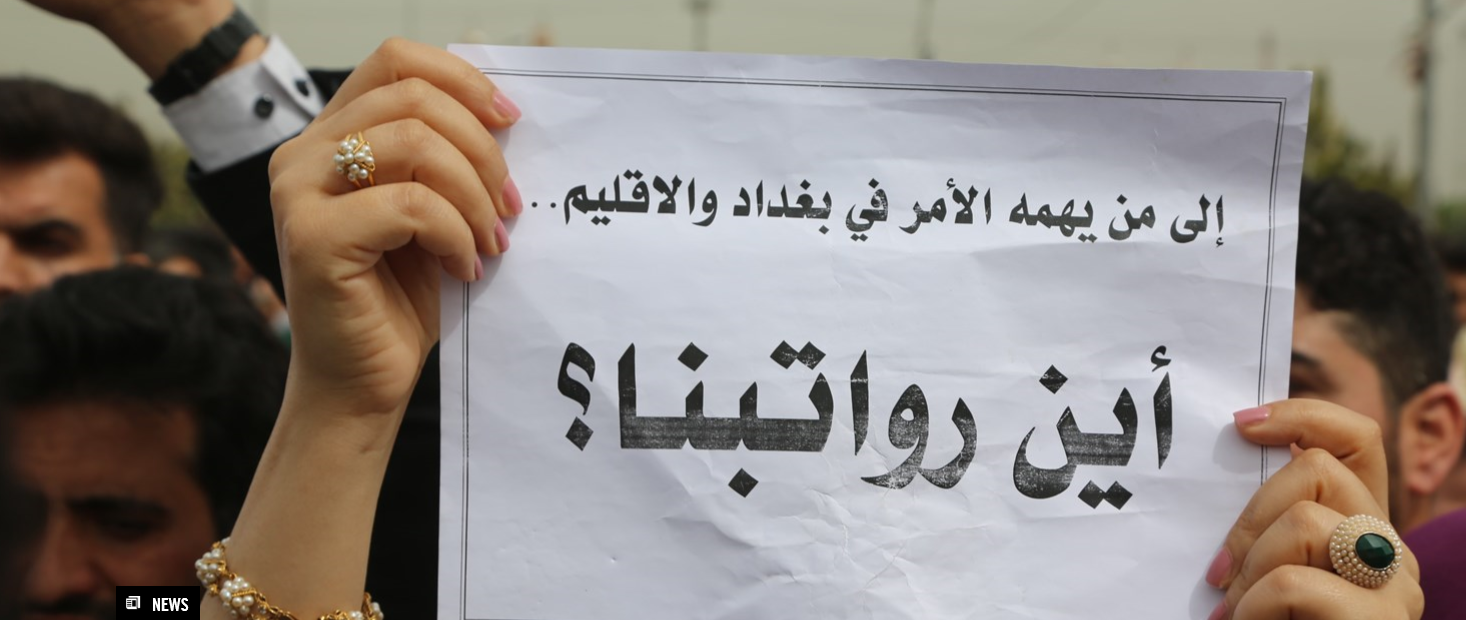 إلى من يهمه الأمر في بغداد والاقليم..
أين رواتبنا؟
NEWS